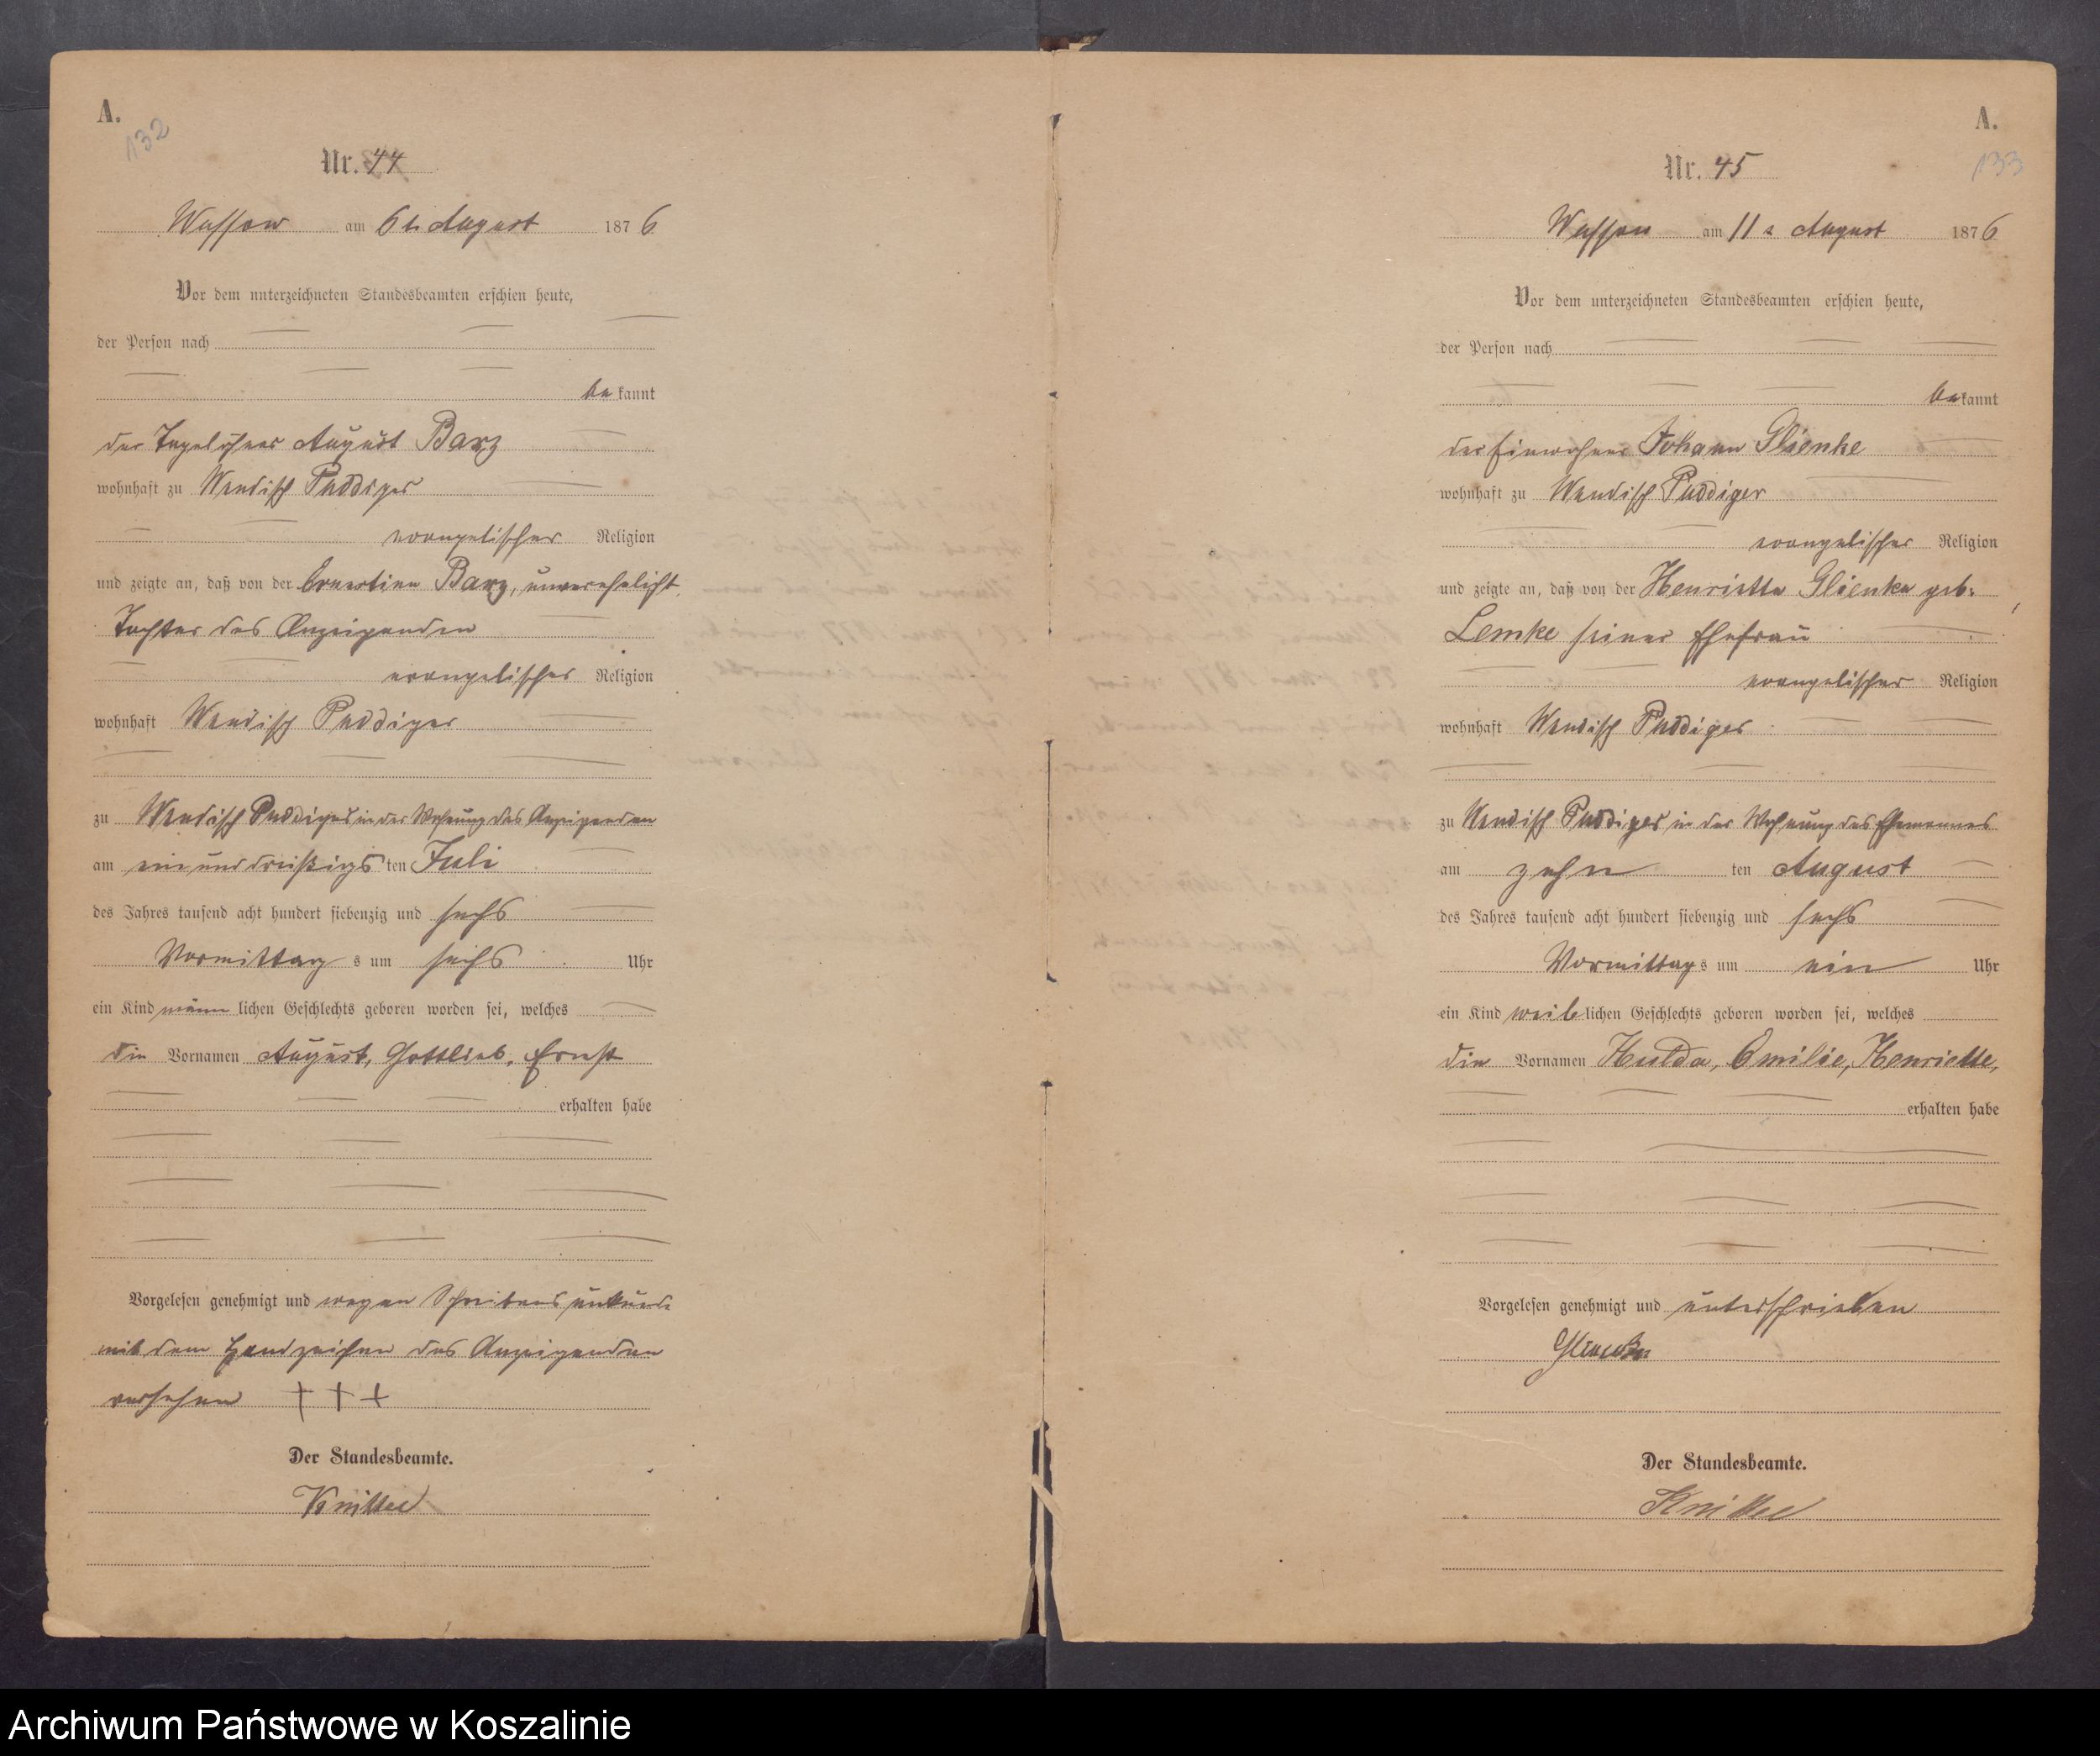 A.
132
Nr. 44
Wussow am 6t. August 1876
Vor dem unterzeichneten Standesbeamten erschien heute,
der Person nach
bekannt
der Tagelöhner August Barz
wohnhaft zu Wendisch Puddiger
evangelischer Religion
und zeigte an, daß von der Ernestine Barz, unverehelicht,
Tochter des Anzeigenden
evangelischer Religion
wohnhaft Wendisch Puddiger
zu Wendisch Puddiger in der Wohnung des Anzeigenden
am ein und dreißigsten Juli
des Jahres tausend acht hundert siebenzig und sechs
Vormittags um sechs Uhr
ein Kind männlichen Geschlechts geboren worden sei, welches
die Vornamen August, Gottlieb, Ernst
erhalten habe
Vorgelesen genehmigt und wegen Schreibens unkunde
mit dem Handzeichen des Anzeigenden
versehen † † †
Der Standesbeamte.
Knittel
A.
133
Nr. 45
Wussow am 11t August 1876
Vor dem unterzeichneten Standesbeamten erschien heute,
der Person nach
bekannt
der Einwohner Johann Glienke
wohnhaft zu Wendisch Puddiger
evangelischer Religion
und zeigte an, daß von der Henriette Glienke geb.
Lemke seiner Ehefrau
evangelischer Religion
wohnhaft Wendisch Puddiger
zu Wendisch Puddiger in der Wohnung des Ehemannes
am zehn ten August
des Jahres tausend acht hundert siebenzig und sechs
Vormittags um ein Uhr
ein Kind weiblichen Geschlechts geboren worden sei, welches
die Vornamen Hulda, Emilie, Henriette,
erhalten habe
Vorgelesen genehmigt und unterschrieben
Glienke
Der Standesbeamte.
Knittel
Archiwum Państwowe w Koszalinie